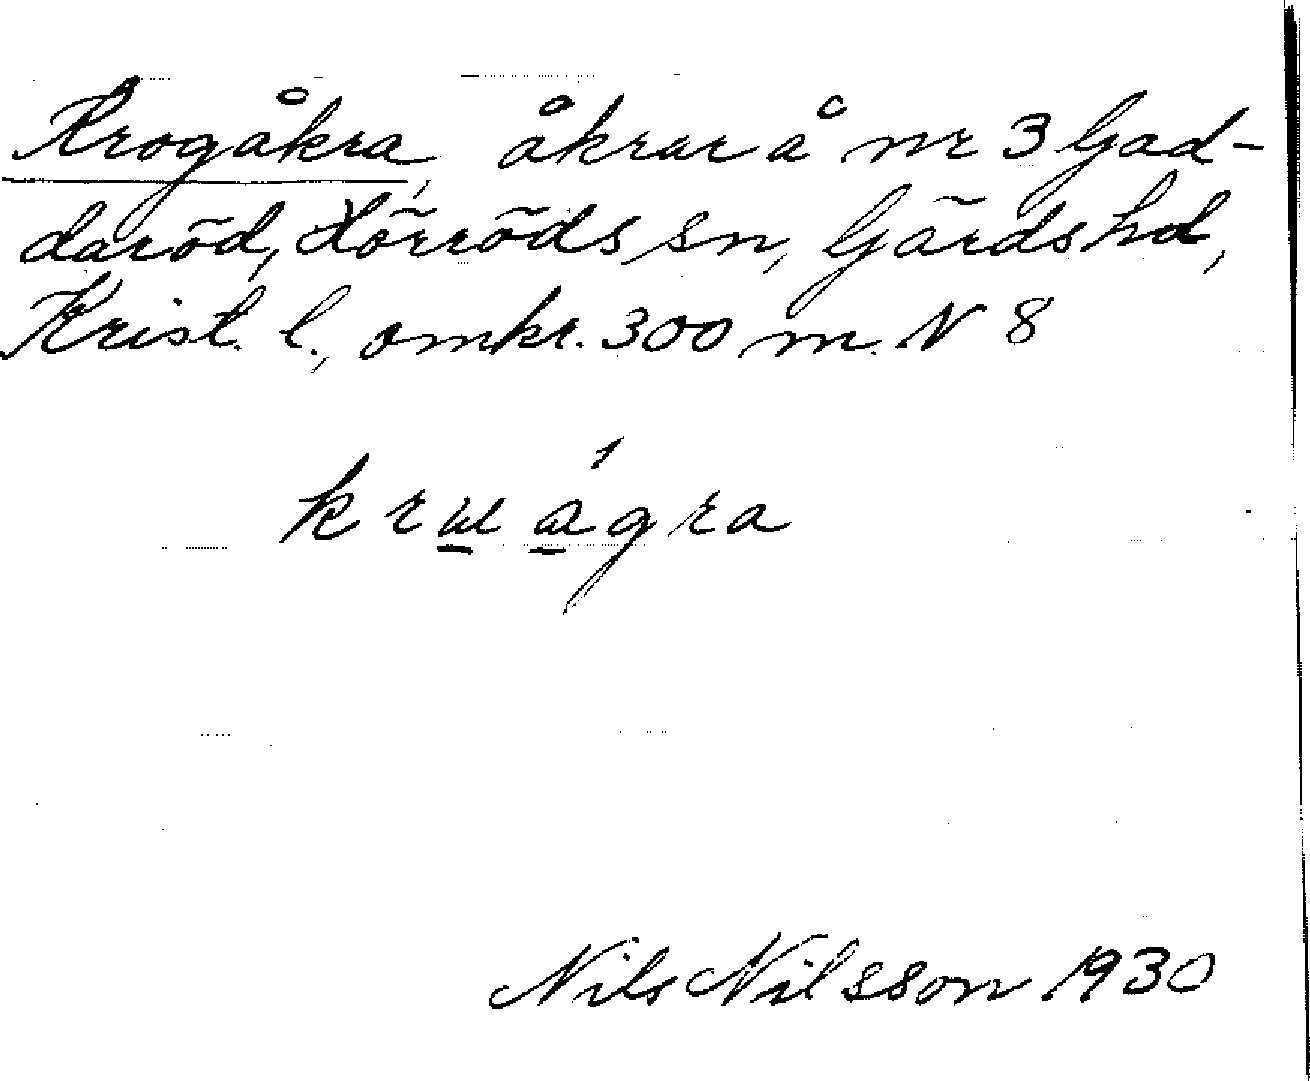 Krogåkra, åkrar å nr 3 Gad-
daröd, Hörröds sn, Gärds hd,
Krist. l., omkr. 300 m. N 8
Nils Nilsson 1930